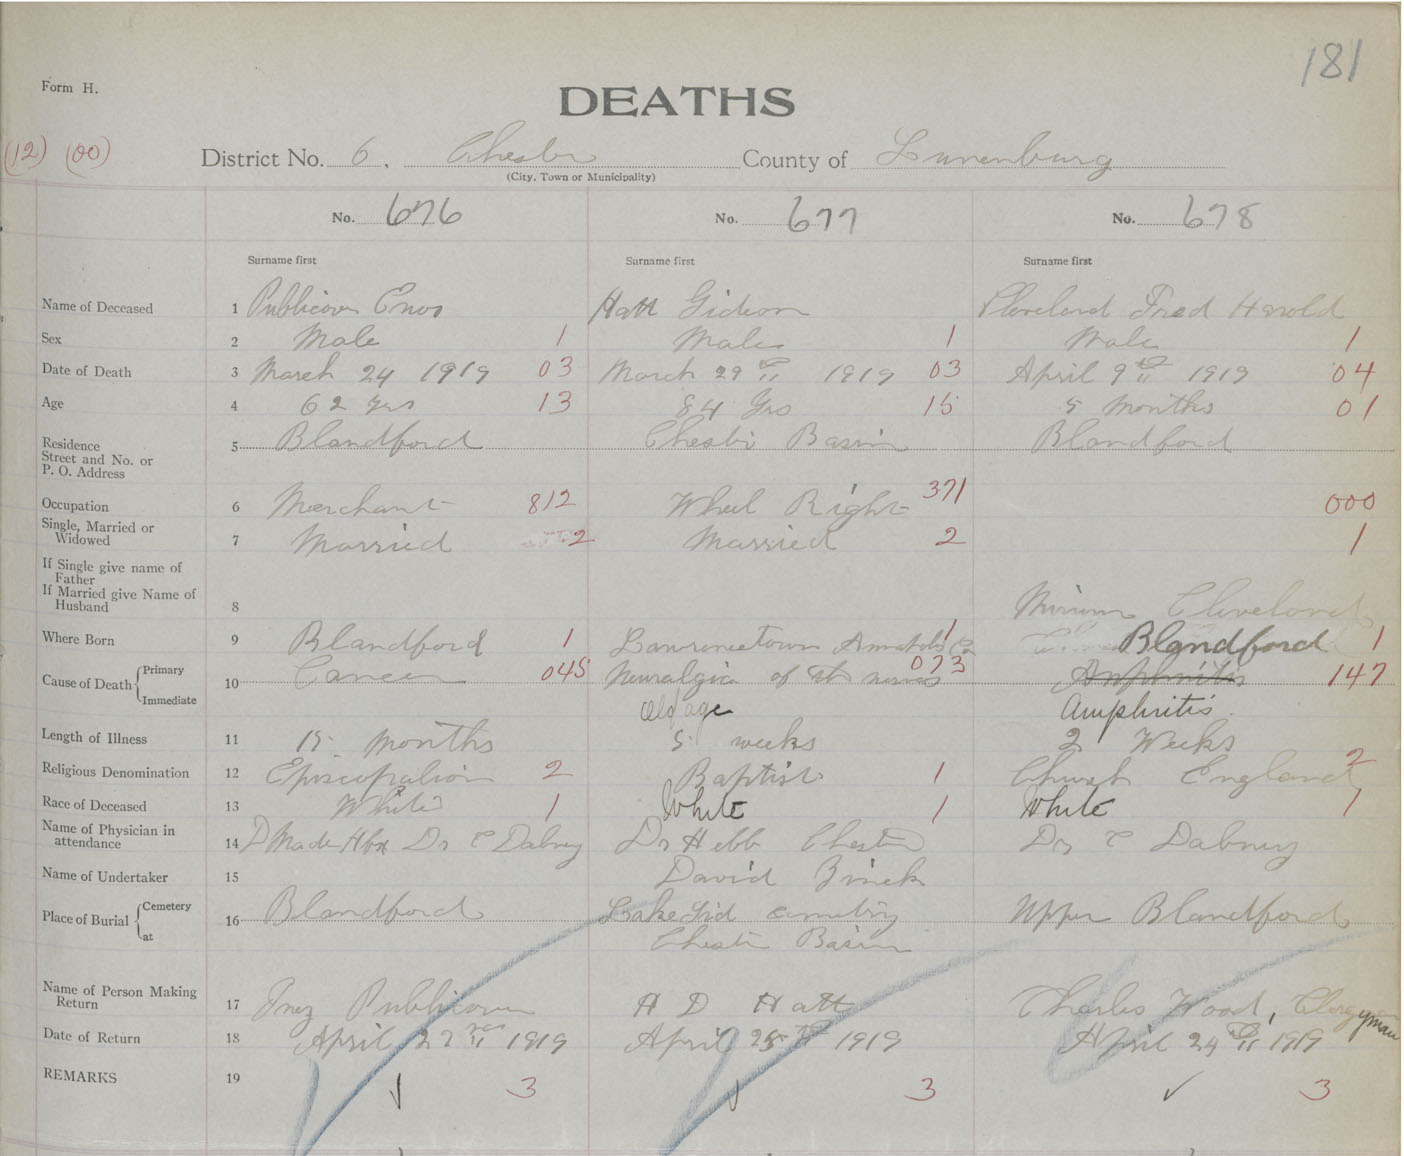 181
Form H.
DEATHS
(12) (00)
District No. 6. Chester County of Lunenburg
(City, Town or Municipality)
No. 676 No. 677 No. 678
Surname first Surname first Surname first
Name of Deceased 1 Publicover Enos Hatt Gideon Cleveland Fred Harold
Sex 2 Male 1 Male 1 Male 1
Date of Death 3 March 24 1919 03 March 29th 1919 03 April 9th 1919 04
Age 4 62 yrs 13 84 Yrs 15 5 Months 01
Residence
Street and No. or
P. O. Address
5 Blandford Chester Basin Blandford
Occupation 6 Merchant 812 Wheel Right 371 000
Single, Married or
Widowed
7 Married 2 Married 2 1
If Single give name of
Father
If Married give Name of
Husband
8 Cleveland
Where Born 9 Blandford 1 Lawrencetown Annapolis Co 1 Blandford 1
Cause of Death Primary
Immediate
10 Cancer 045 Neuralgia of the nerves 073 147
Old age Amphritis
Length of Illness 11 15 months 5 weeks 2 Weeks
Religious Denomination 12 Episcopalion 2 Baptist 1 Church England 2
Race of Deceased 13 White 1 White 1 White 1
Name of Physician in
attendance
14 Hbx Dr C Dabney Dr Hebb Chester Dr C Dabney
Name of Undertaker 15 David Zinck
Place of Burial Cemetery
at
16 Blandford Lake Sid cemetry Upper Blandford
Chester Basin
Name of Person Making
Return
17 Inez Publicover H D Hatt Charles Wood, Clergyman
Date of Return 18 April 1919 April 25th 1919 April 24th 1919
REMARKS 19 3 3 3